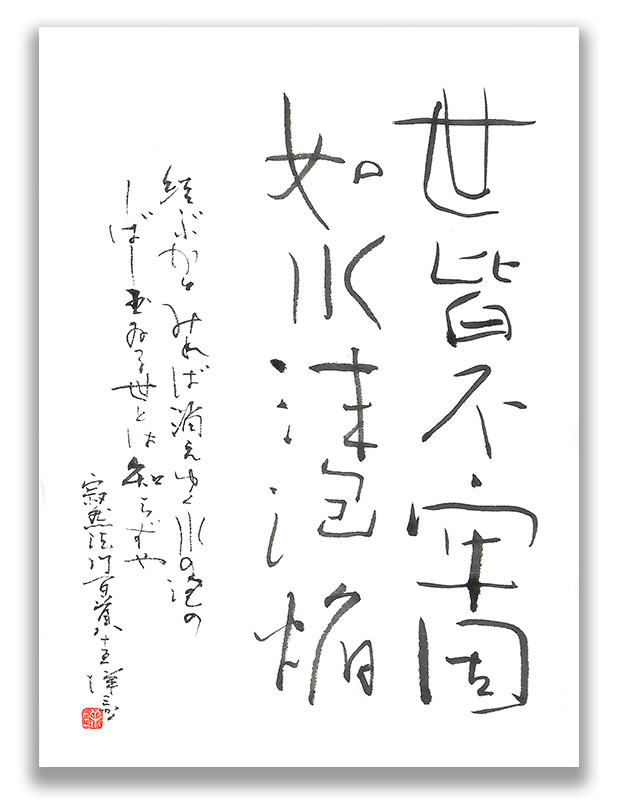 世皆不牢固
如水沫泡焔
結ぶかとみれば消えゆく水の泡の
しばし玉ゐる世とは知らずや
寂然法門百首八十五